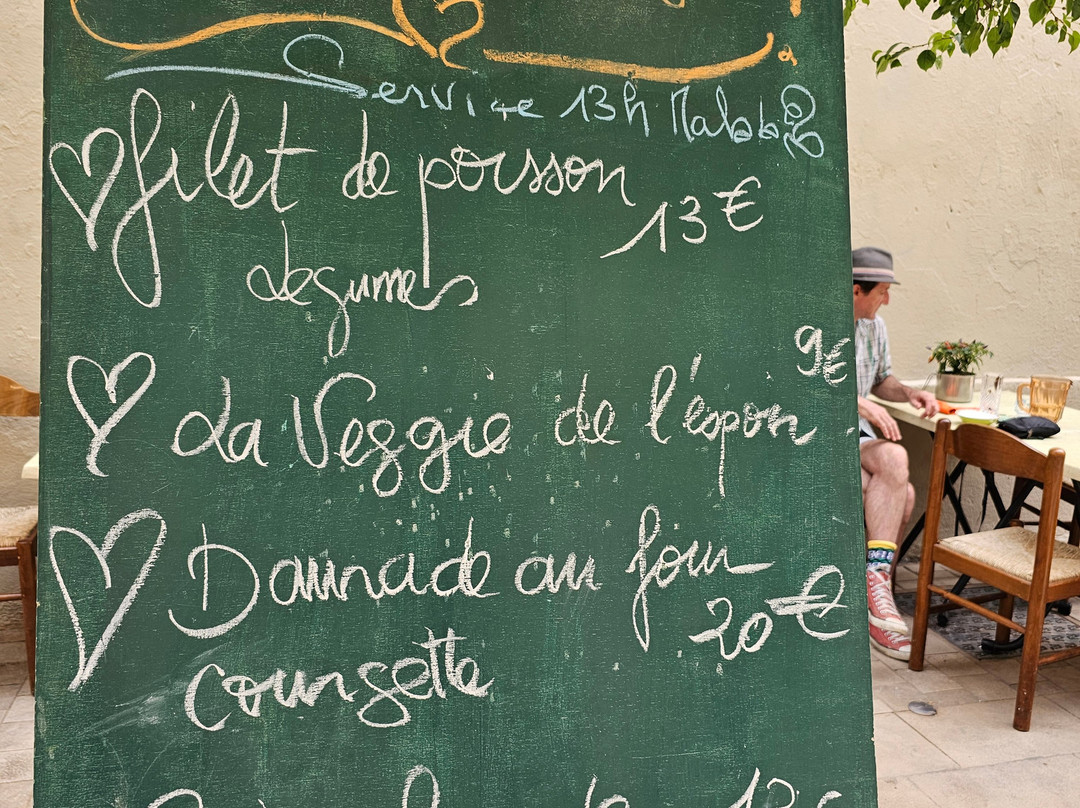 Service 13h
filet de poisson
13€
légumes
9€
La Veggie de l'éspon
Daurade au four
20€
courgette